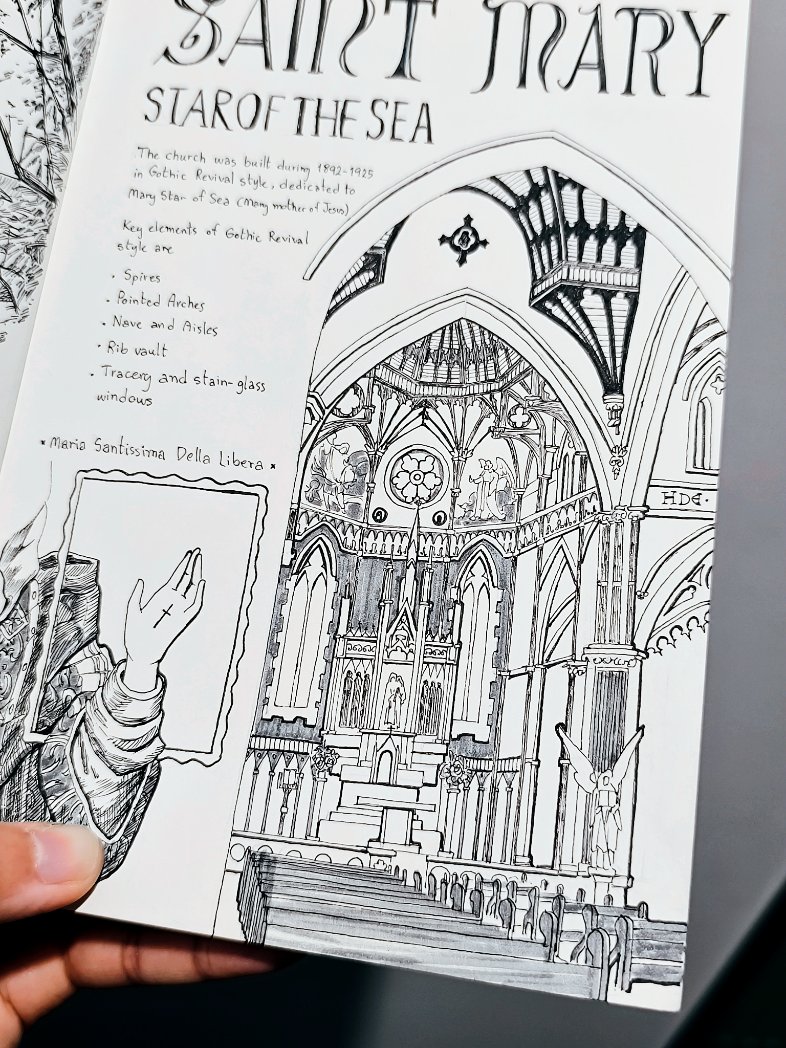 SAINT MARY
STAR OF THE SEA
The church was built during 1892-1925
in Gothic Revival style, dedicated to
Mary Star of Sea (Mary mother of Jesus)
Key elements of Gothic Revival
style are
• Spires
• Pointed Arches
• Nave and Aisles
• Rib vault
• Tracery and stain-glass
windows
* Maria Santissima Della Libera *
HDG.